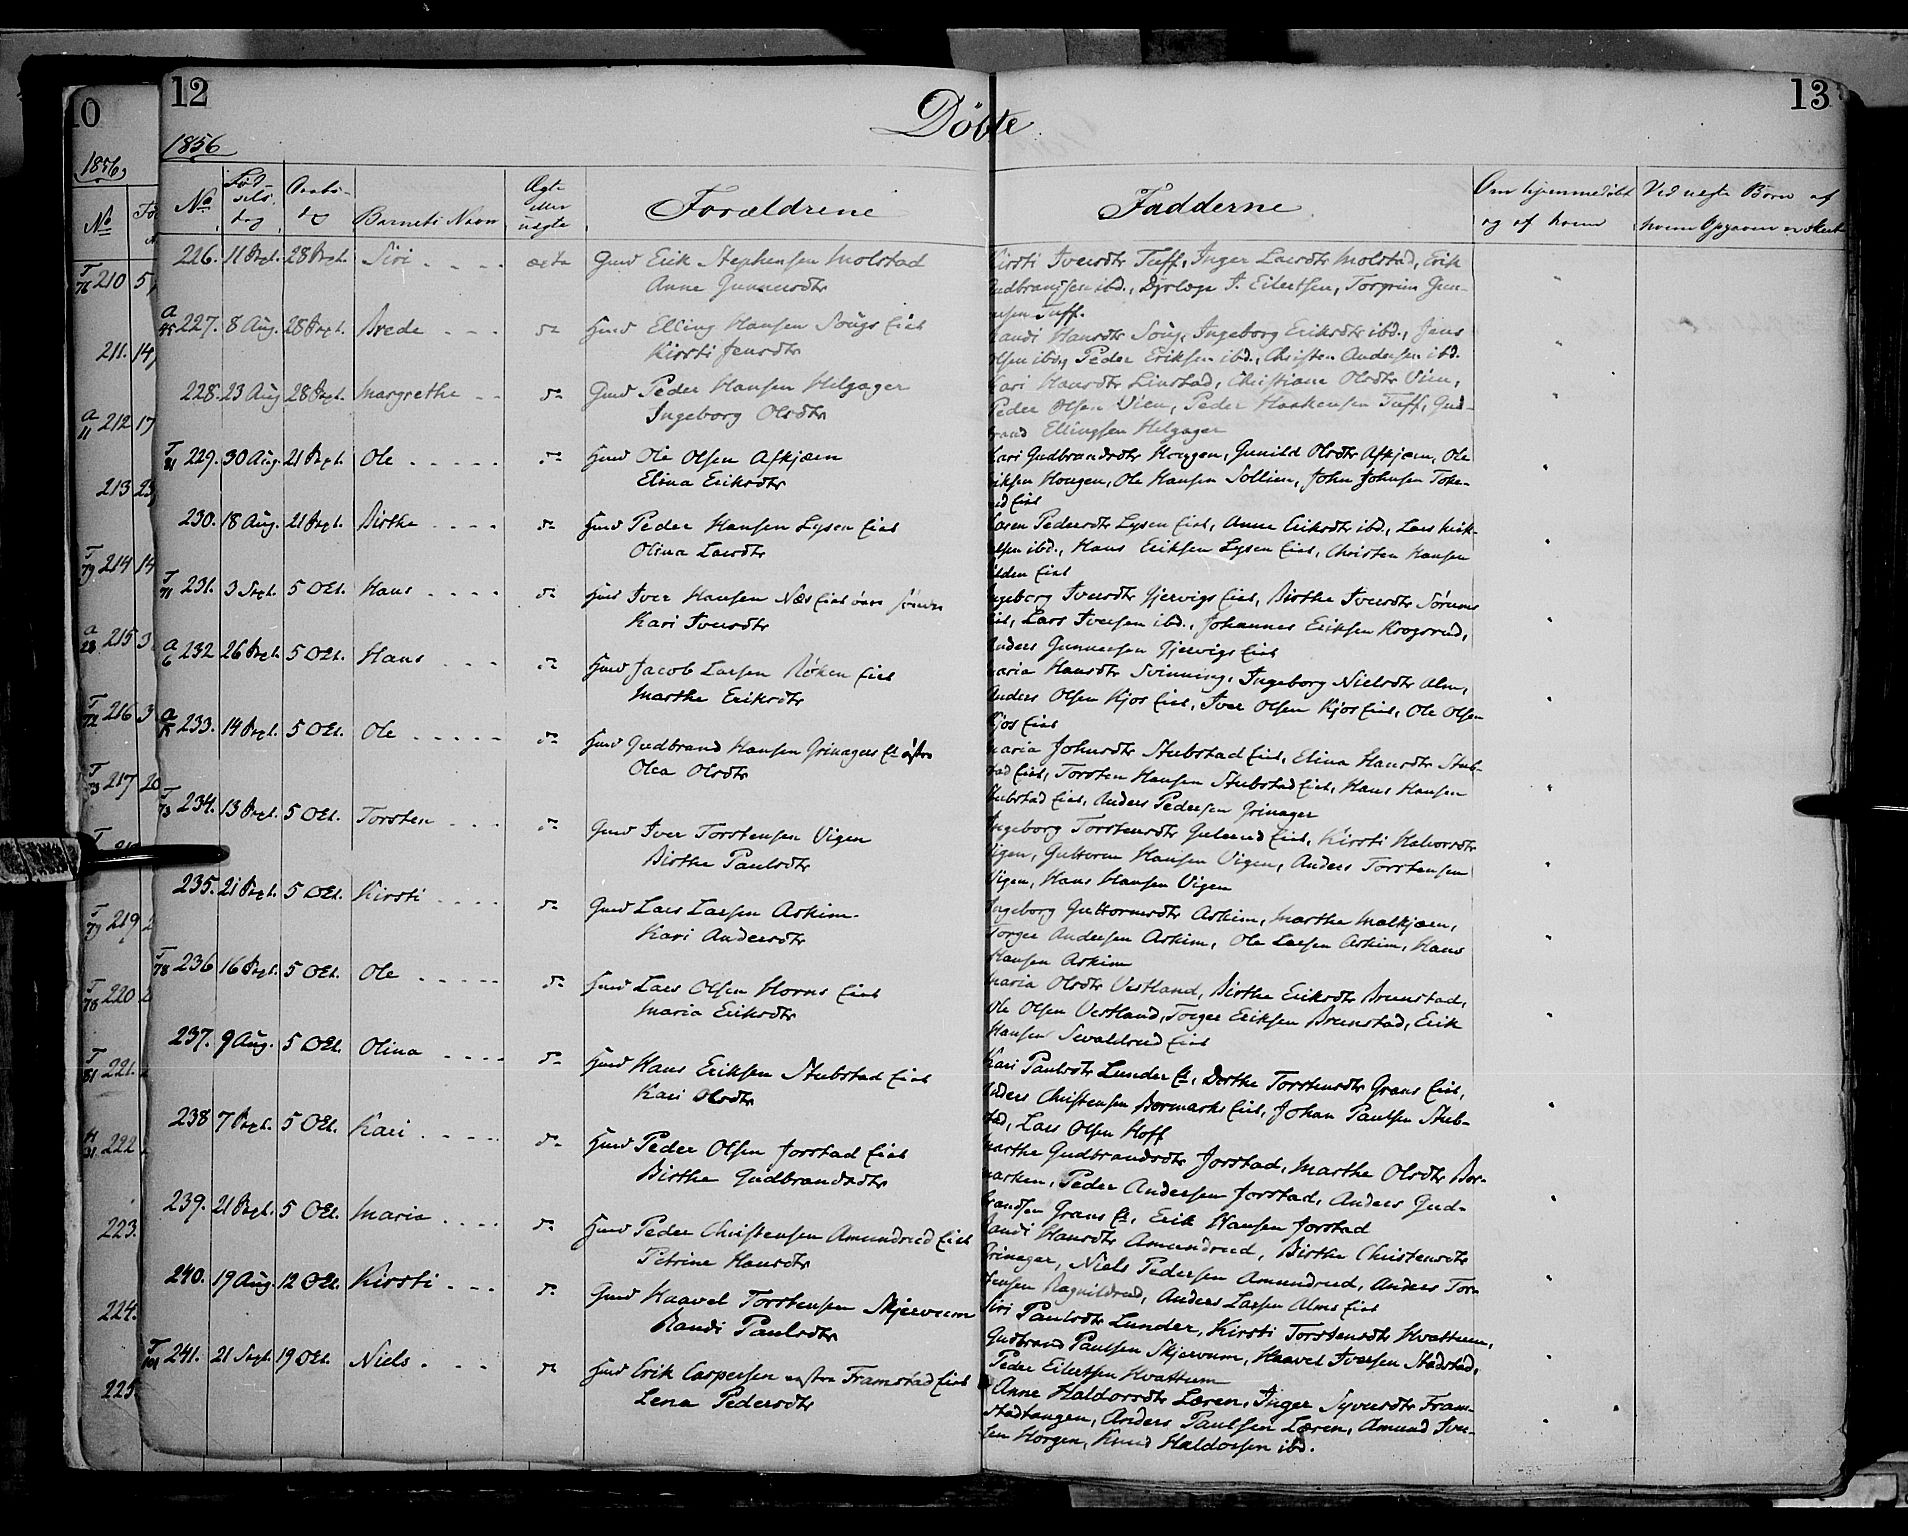 10
1856,
No
T 76 210 5
211. 14
a 11 212 17
213 23
T 79 214 14
a 28 215 3
T 72 216 3
T 73 217 20
T 79 219 2
T 78 220 2
T 81 221.
222
223.
224.
225
12
13
Døbte
1856
No Fød-sels dag Daabs-dag Barnets Navn Ægte eller uægte Forældrene Fadderne Om hjemmedøbt og af hvem Ved uægte Børn af hvem Opgaven er skeet
226. 11 Sept. 28 Sept. Siri ægte Gmd Erik Stephensen Molstad
Anne Gunnersdtr
Kirsti Iversdtr Tuff, Inger Larsdtr Molstad, Erik
Gudbrandsen ibd., Dyrlæge I. Eilertsen, Torgrim Gun-
nersen Tuff.
a 45 227. 8 Aug. 28 Sept. Brede do Hmd Elling Hansen Søugs Eiet
Kirsti Jensdtr
Randi Hansdtr Søug, Ingeborg Eriksdtr ibd., Jens
Olsen ibd., Peder Eriksen ibd., Christen Andersen ibd.
228. 23 Aug 28 Sept. Margrethe do Gmd Peder Hansen Helgager
Ingeborg Olsdtr
Kari Hansdtr Linstad, Christiane Olsdtr Vien,
Peder Olsen Vien, Peder Haakensen Tuff, Gud-
brand Ellingsen Helgager
T 81 229. 30 Aug. 21 Sept. Ole do Hmd Ole Olsen Askjæm
Elina Eriksdtr
Kari Gudbrandsdtr Hougen, Gunild Olsdtr Askjæm, Ole
Eriksen Hougen, Ole Hansen Sollien, John Johnsen Toke-
rud Eiet
230. 18 Aug. 21 Sept. Birthe do Hmd Peder Hansen Lysen Eiet
Olina Larsdtr
Karen Pedersdtr Lysen Eiet, Anne Eriksdtr ibd., Lars
ibd., Hans Eriksen Lysen Eiet, Christen Hansen
Eiet
T 71 231. 3 Sept. 5 Okt. Hans do Hmd Iver Hansen Næs Eiet
Kari Iversdtr
Ingeborg Iversdtr Gjervigs Eiet, Birthe Iversdtr Sørums
Eiet, Lars Iversen ibd., Johannes Eriksen Krogsrud,
Anders Gunnersen Gjervigs Eiet
a 6 232 26 Sept. 5 Okt. Hans do Hmd Jacob Larsen Røken Eiet
Marthe Eriksdtr
Maria Hansdtr Svinning, Ingeborg Nielsdtr Alm,
Anders Olsen Kjos Eiet, Iver Olsen Kjos Eiet, Ole Olsen
Kjos Eiet
233. 14 Sept. 5 Okt. Ole do Hmd Gudbrand Hansen Grinagers Et østre
Olea Olsdtr
Maria Johnsdtr Stubstad Eiet, Elina Hansdtr Stub-
stad Eiet, Torsten Hansen Stubstad Eiet, Hans Hansen
Stubstad Eiet, Anders Pedersen Grinager
T 73 234. 13 Sept. 5 Okt. Torsten do Gmd Iver Torstensen Vigen
Birthe Paulsdtr
Ingeborg Torstensdtr Gulerud Eiet, Kirsti Halvorsdtr
Vigen, Guttorm Hansen Vigen, Anders Torstensen
Vigen, Hans Hansen Vigen
235. 21 Sept. 5 Okt. Kirsti do Gmd Lars Larsen Askim.
Kari Andersdtr
Ingeborg Guttormsdtr Askim, Marthe Malkjæm,
Torger Andersen Askim, Ole Larsen Askim, Hans
Hansen Askim
T 78 236 16 Sept. 5 Okt. Ole do Hmd Lars Olsen Horns Eiet
Maria Eriksdtr
Maria Olsdtr Vestland, Birthe Eriksdtr Brunstad,
Ole Olsen Vestland, Torger Eriksen Brunstad, Erik
Hansen Sevaldrud Eiet
237. 9 Aug. 5 Okt. Olina do Hmd Hans Eriksen Stubstad Eiet
Kari Olsdtr
Kari Paulsdtr Lunder Et, Dorthe Torstensdtr Grans Eiet,
Anders Christensen Bormarks Eiet, Johan Paulsen Stub-
stad, Lars Olsen Hoff
238 7 Sept. 5 Okt. Kari do Hmd Peder Olsen Jorstad Eiet
Birthe Gudbrandsdtr
Marthe Gudbrandsdtr Jorstad, Marthe Olsdtr Bor-
marken, Peder Andersen Jorstad, Anders Gud-
brandsen Grans Et, Erik Hansen Jorstad
239. 21 Sept. 5 Okt. Maria do Hmd Peder Christensen Amundrud Eiet
Petrine Hansdtr
Randi Hansdtr Amundrud, Birthe Christensdtr
Grinager, Niels Pedersen Amundrud, Anders Tor-
stensen Ragnildrud, Anders Larsen Alms Eiet
240. 19 Aug. 12 Okt. Kirsti do Gmd Haavel Torstensen Skjervum
Randi Paulsdtr
Siri Paulsdtr Lunder, Kirsti Torstensdtr Hvattum,
Gudbrand Paulsen Skjervum, Haavel Iversen Stadstad,
Peder Eilertsen Hvattum
T 101 241. 21 Sept. 19 Okt. Niels do Hmd Erik Caspersen østre Framstad Eiet
Lena Pedersdtr
Anne Haldorsdtr Læren, Inger Syversdtr Fram-
stadtangen, Anders Paulsen Læren, Amund Iver-
sen Horgen, Knud Haldorsen ibd.